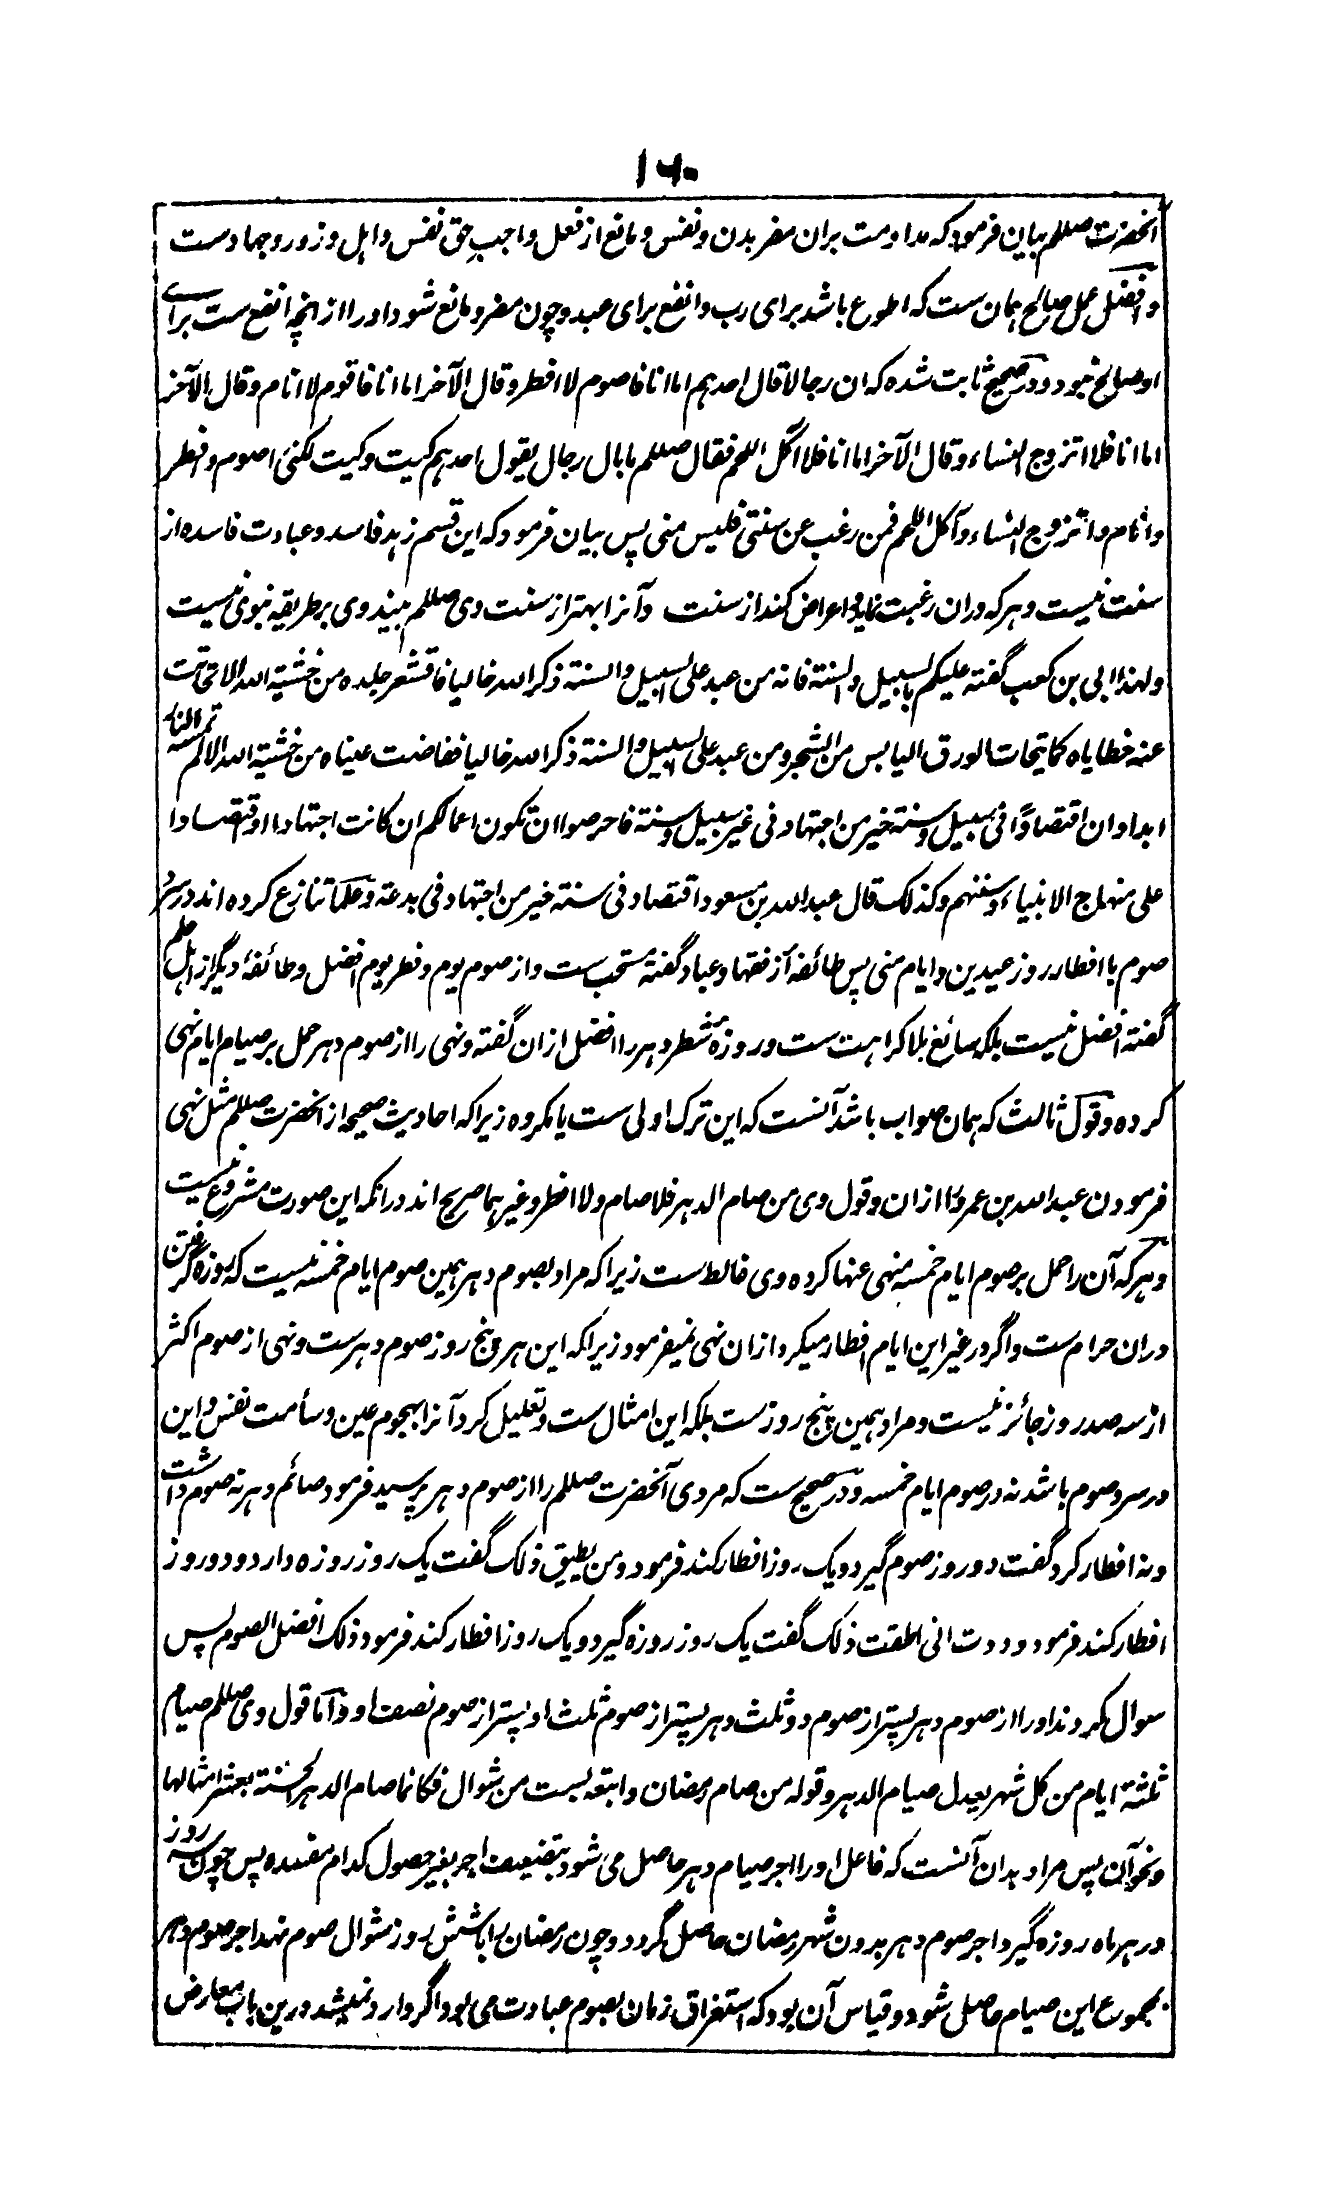 ۱۶۰
آنحضرت صللم بیان فرمود که مداومت بران مضر بدن و نفس و مانع از فعل واجب حق نفس و اہل و زور و جہادست
و افضل عمل صالح ہمان ست کہ اطوع باشد برای رب و انفع برای عبد و چون مضر و مانع شود او را از انچہ انفع ست برای
او صالح نبود و در صحیح ثابت شدہ کہ ان رجالا قال احدہم اما انا فاصوم لا افطر و قال الآخر اما انا فاقوم لا انام و قال الآخر
اما انا فلا اتزوج النساء و قال الآخر اما انا فلا آکل اللحم فقال صللم ما بال رجال یقول احدہم کیت و کیت لکنی اصوم و افطر
و انام و اتزوج النساء و آکل اللحم فمن رغب عن سنتی فلیس منی پس بیان فرمود کہ این قسم زہد فاسد و عبادت فاسدہ از
سنت نیست و ہر کہ دران رغبت نماید و اعراض کند از سنت و آنرا بہتر از سنت وی صللم بیند وی بر طریقہ نبوی نیست
و لہذا ابی بن کعب گفتہ علیکم بالسبیل و السنة فانہ من عبد علی السبیل و السنة ذکر اللہ خالیا فاقشعر جلدہ من خشیة اللہ الا تحاتت
عنہ خطایاہ کما یتحات الورق الیابس من الشجر و من عبد علی السبیل و السنة ذکر اللہ خالیا ففاضت عیناہ من خشیة اللہ الا لم تمسہ النار
ابدا و ان اقتصادًا فی سبیل و سنة خیر من اجتہاد فی غیر سبیل و سنة فاحرصوا ان تکون اعمالکم ان کانت اجتہادا او اقتصادا
علی منہاج الانبیاء و سننہم و کذلک قال عبد اللہ بن مسعود اقتصاد فی سنة خیر من اجتہاد فی بدعة و علما تنازع کردہ اند در سرد
صوم با افطار روز عیدین و ایام منی پس طائفہ از فقہا و عباد گفتہ مستحب ست و از صوم یوم و فطر یوم افضل و طائفہٴ دیگر از اہل علم
گفتہ افضل نیست بلکہ سائغ بلا کراہت ست و روزہٴ شطر دہر را افضل ازان گفتہ و نہی را از صوم دہر حمل بر صیام ایام نہی
کردہ و قول ثالث کہ ہمان صواب باشد آنست کہ این ترک اولی ست یا مکروہ زیرا کہ احادیث صحیحہ از آنحضرت صللم مثل نہی
فرمودن عبد اللہ بن عمرو را ازان و قول وی من صام الدہر فلا صام و لا افطر و غیرہما صریح اند در انکہ این صورت مشروع نیست
و ہر کہ آن را حمل بر صوم ایام خمسہ منہی عنہا کردہ وی غالط ست زیرا کہ مراد بصوم دہر ہمین صوم ایام خمسہ نیست کہ روزہ گرفتن
دران حرام ست و اگر در غیر این ایام افطار میکرد ازان نہی نمیفرمود زیرا کہ این ہر پنج روز صوم دہر ست و نہی از صوم اکثر
از سہ صد روز جائز نیست و مراد ہمین پنج روزست بلکہ این امثال ست و تعلیل کرد آنرا بہجوم عین و سآمت نفس و این
در سرد صوم باشد نہ در صوم ایام خمسہ و در صحیح ست کہ مردی آنحضرت صللم را از صوم دہر پرسید فرمود صائم دہر نہ صوم داشت
و نہ افطار کرد گفت دو روز صوم گیرد و یک روز افطار کند فرمود و من یطیق ذلک گفت یک روز روزہ دارد و دو روز
افطار کند فرمود وددت انی اطقت ذلک گفت یک روز روزہ گیرد و یک روز افطار کند فرمود ذلک افضل الصوم پس
سوال کردند او را از صوم دہر پستر از صوم دو ثلث دہر پستر از صوم ثلث او پستر از صوم نصف او و اما قول وی صللم صیام
ثلثة ایام من کل شہر یعدل صیام الدہر و قولہ من صام رمضان و اتبعہ بست من شوال فکانما صام الدہر الحسنة بعشر امثالہا
و نحو آن پس مراد بدان آنست کہ فاعل او را اجر صیام دہر حاصل می شود بتضعیف اجر بغیر حصول کدام مفسدہ پس چون سہ روز
در ہر ماہ روزہ گیرد اجر صوم دہر بدون شہر رمضان حاصل گردد و چون رمضان را با شش روز شوال صوم نہد اجر صوم دہر
بمجموع این صیام حاصل شود و قیاس آن بود کہ استغراق زمان بصوم عبادت می بود اگر وارد نمیشد درین باب معارض